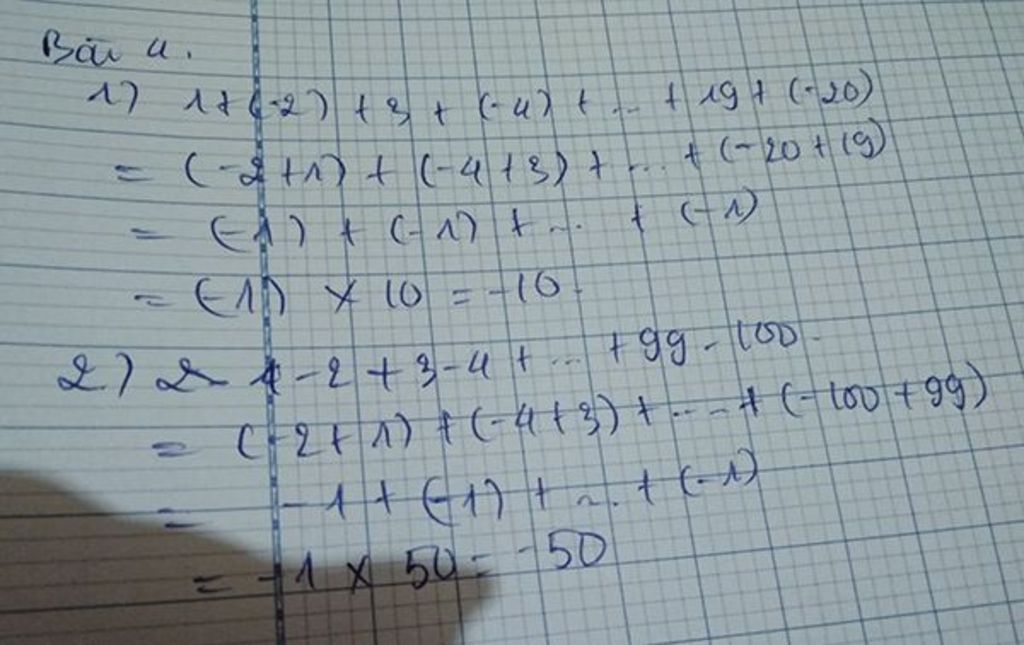 Bài 4.
1) 1+(-2) + 3 + (-4) + ... + 19 + (-20)
= (-2+1) + (-4+3) + ... + (-20+19)
= (-1) + (-1) + ... + (-1)
= (-1) × 10 = -10.
2) 1 - 2 + 3 - 4 + ... + 99 - 100.
= (-2+1) + (-4+3) + ... + (-100+99)
= -1 + (-1) + ... + (-1)
= -1 × 50 = -50